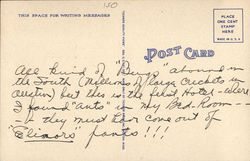 150
THIS SPACE FOR WRITING MESSAGES
POST CARD
PLACE
ONE CENT
STAMP
HERE
All kind of "Bugs" abound in
the South (Millions of large Crickets in
Austin) but this is the first Hotel - where
I found "ants" in my Bed-Room -
- they must have come out of
"Elinors" pants!!!